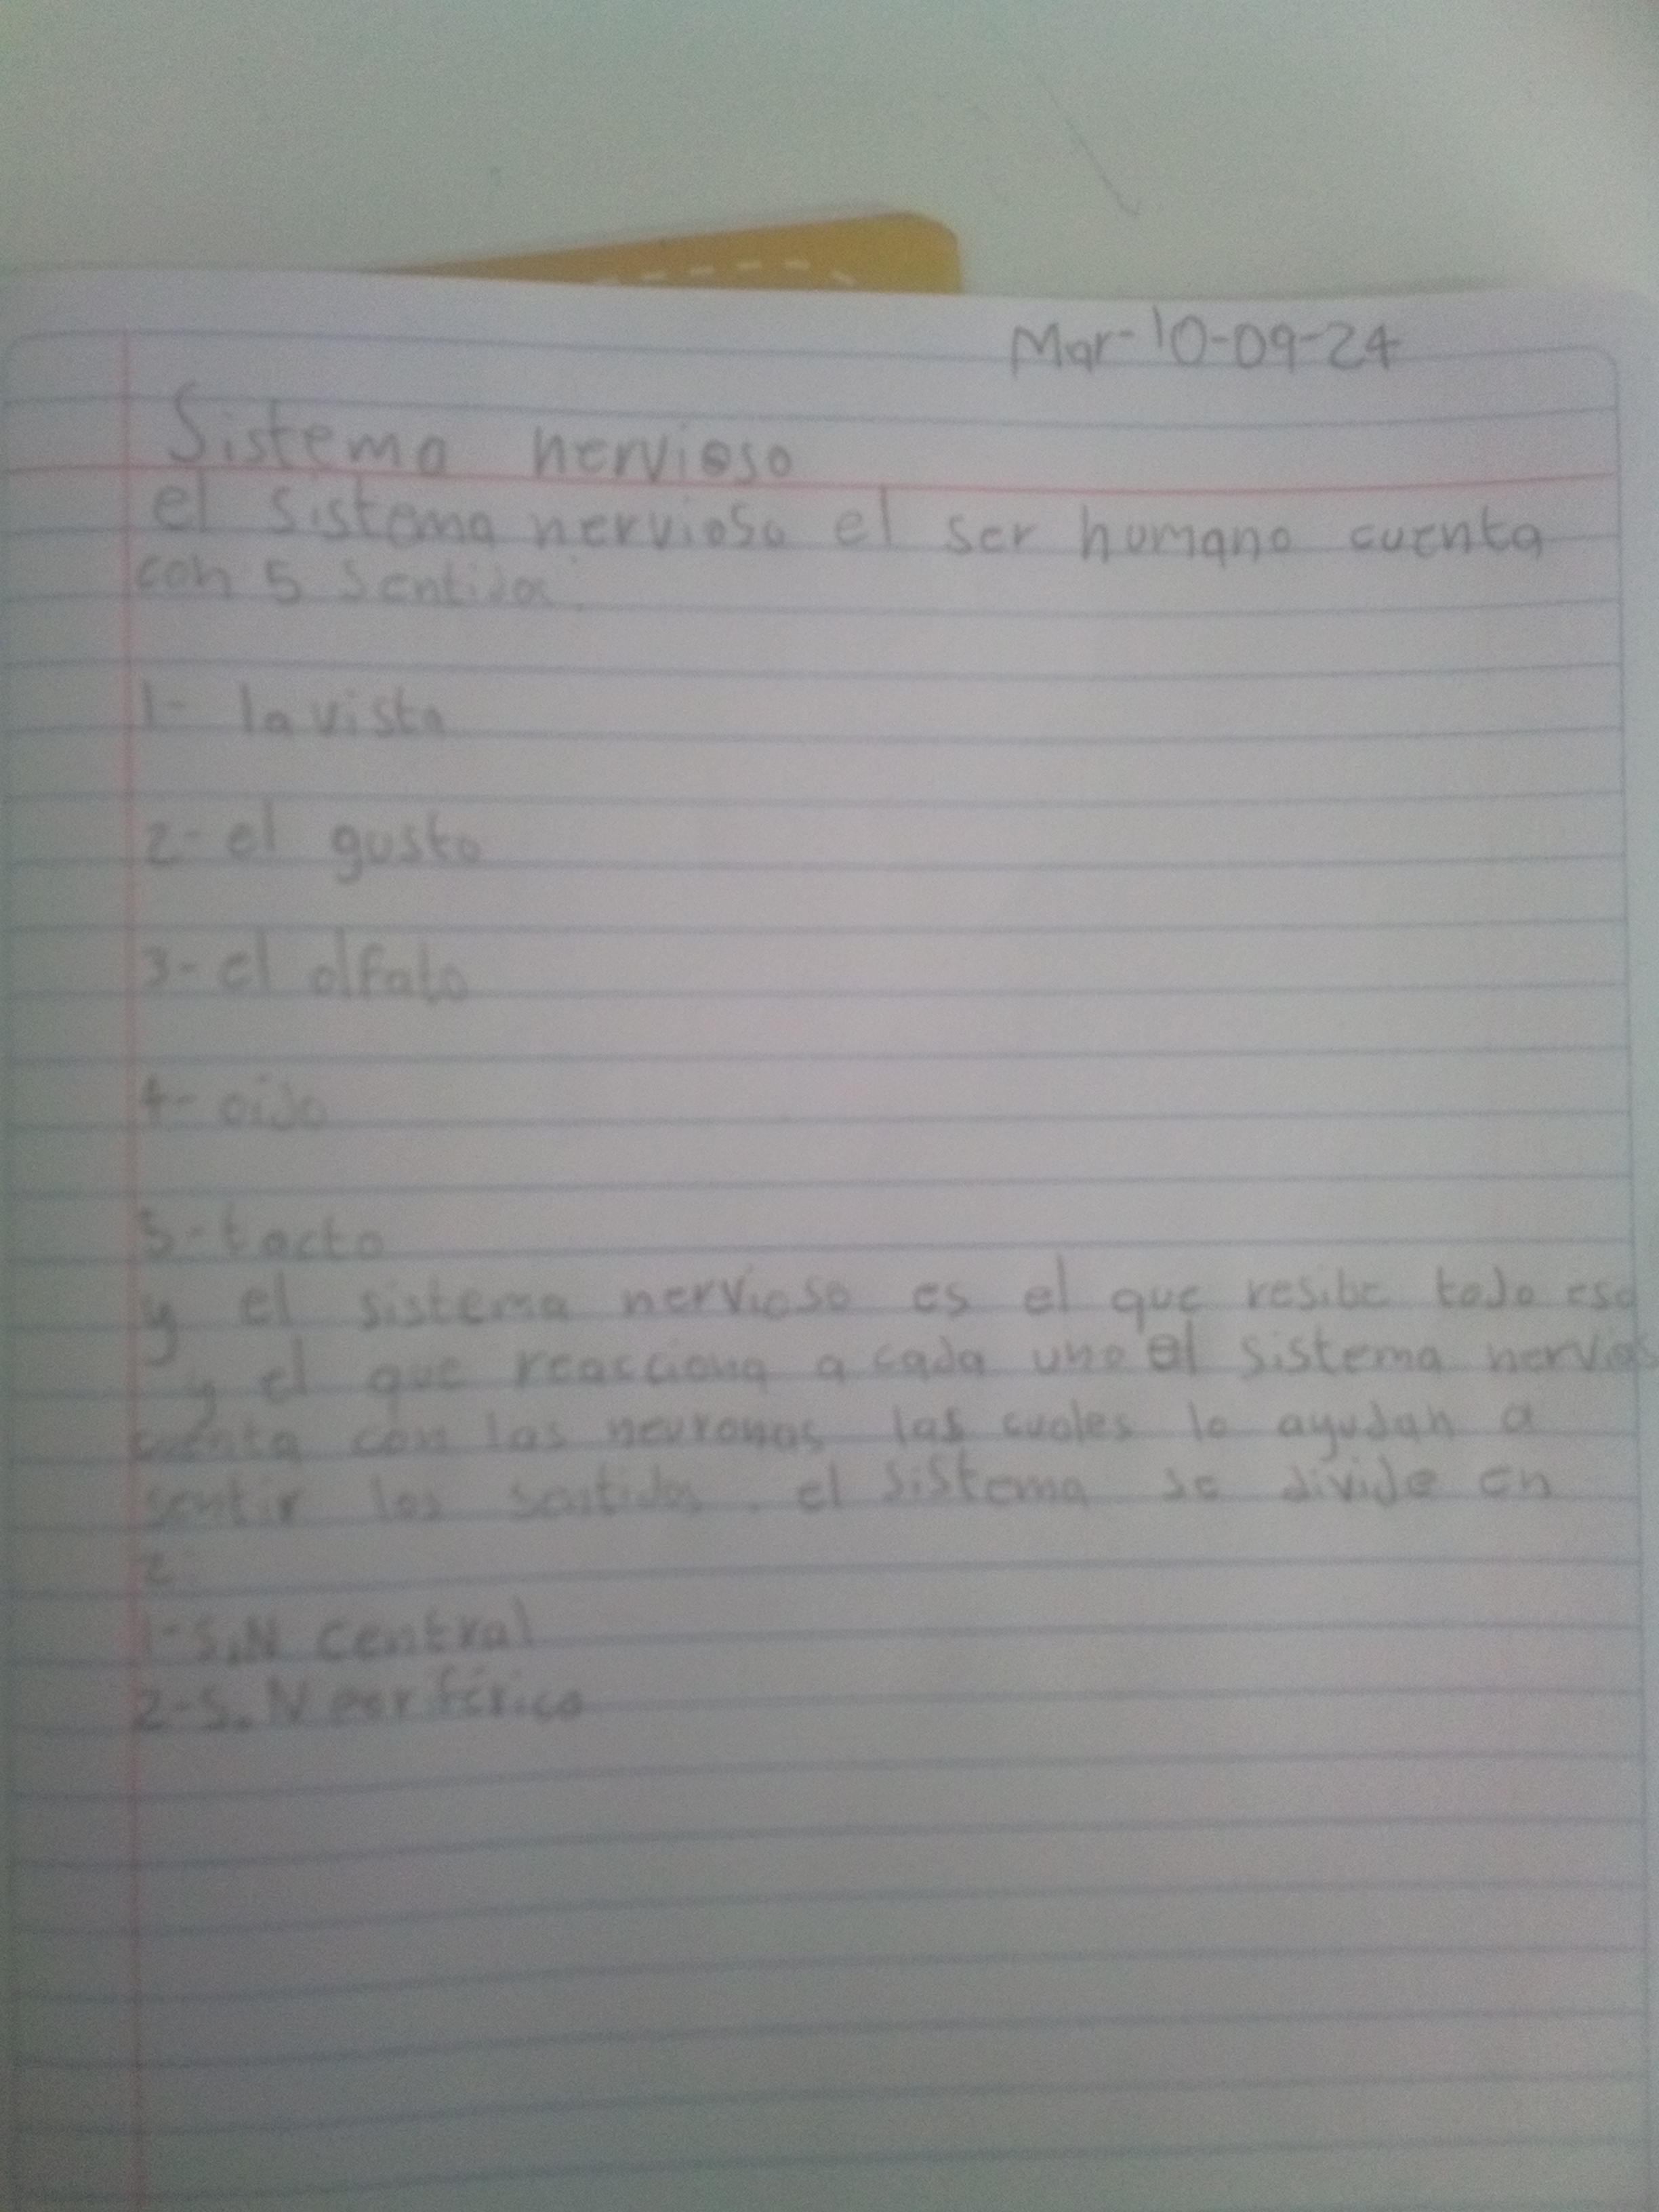 Mar-10-09-24
Sistema nervioso
el sistema nervioso el ser humano cuenta
con 5 sentidos.
1- la vista
2- el gusto
3- el olfato
4- oido
5- tacto
y el sistema nervioso es el que resibe todo eso
y el que reacciona a cada uno el sistema nervios
cuenta con las neuronas las cuales lo ayudan a
sentir los sentidos. el sistema se divide en
2.
1-S.N central
2-S.N periférico